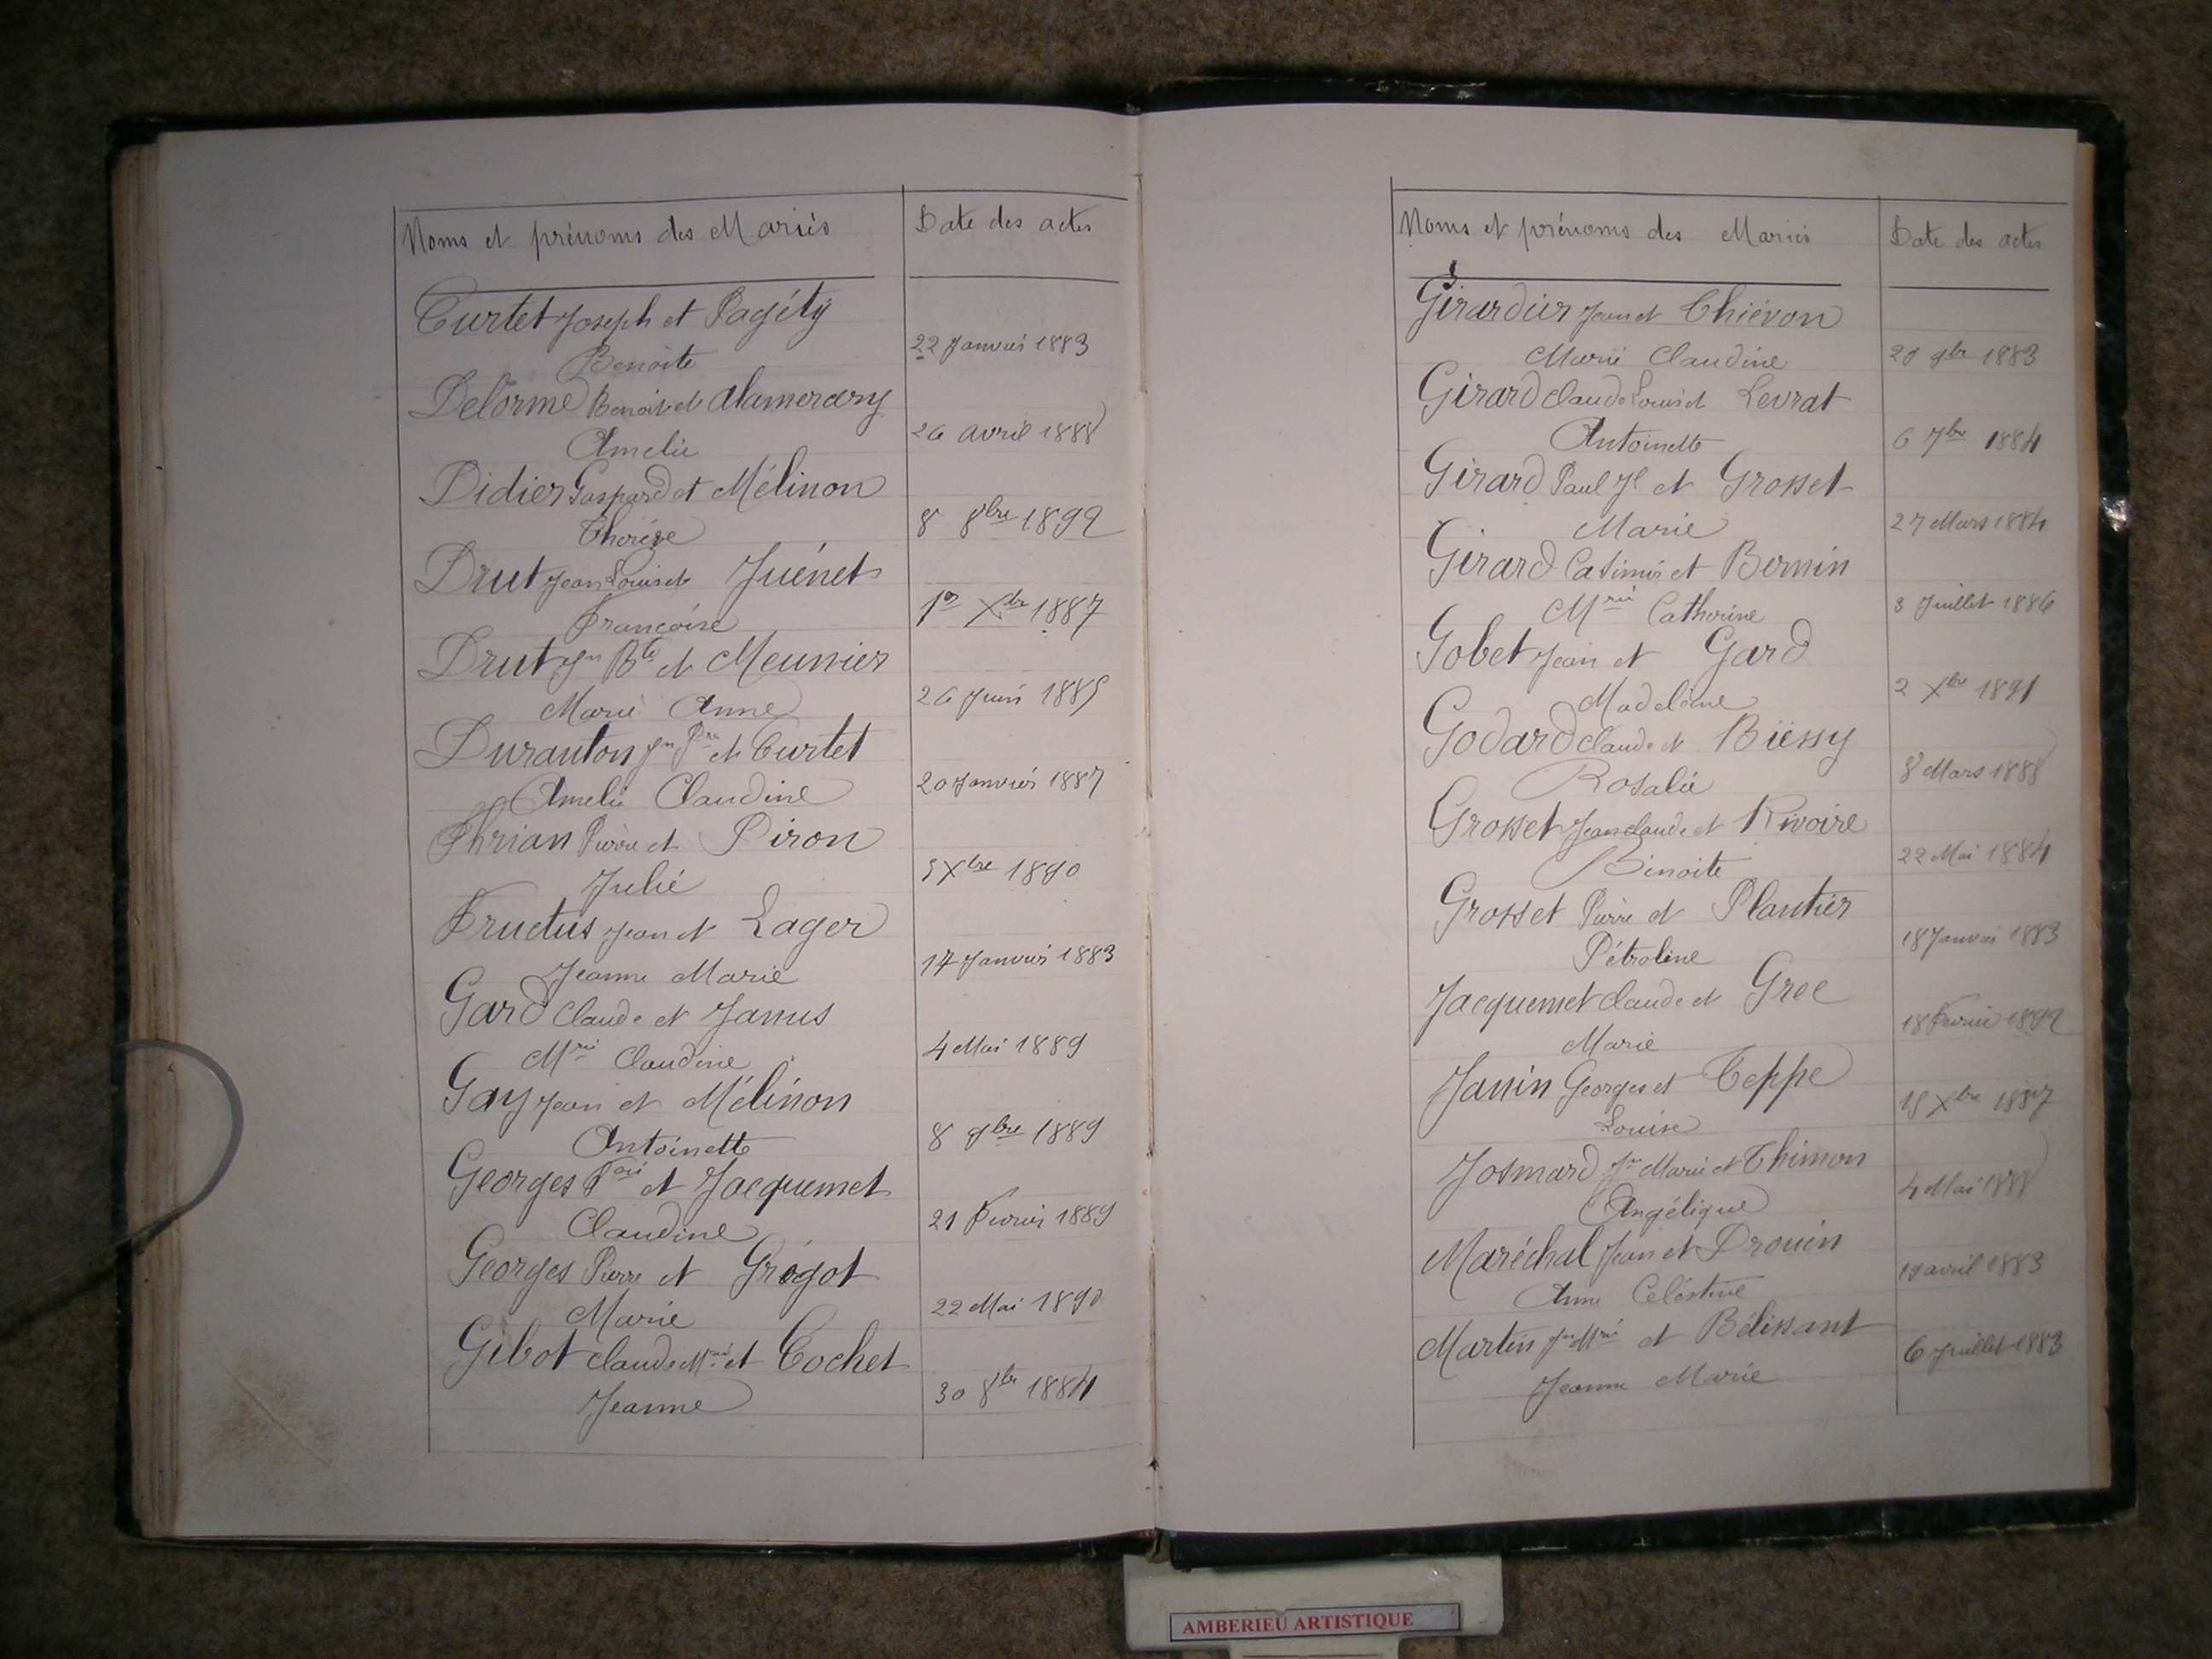 Noms et prénoms des Mariés Date des actes
Curtet Joseph et Pagéty
Benoite 22 Janvier 1883
Delorme Benoit et Alamercery
Amelie 26 avril 1888
Didier Gaspard et Mélinon
Thérèse 8 8bre 1892
Drut Jean Louis et Juénet
Françoise 1er Xbre 1887
Drut Jn Bte et Meunier
Marie Anne 26 Juin 1885
Duranton Jn Pre et Curtet
Amelie Claudine 20 Janvier 1887
Pierre et Piron
Julie Xbre 1890
Fructus Jean et Lager
Jeanne Marie 17 Janvier 1883
Gard Claude et Janus
Mrie Claudine 4 Mai 1889
Gay Jean et Mélinon
Antoinette 8 9bre 1889
Georges et Jacquemet
Claudine 21 Fevrier 1889
Georges Pierre et Grégot
Marie 22 Mai 1890
Gibot Claude Mrie et Cochet
Jeanne 30 8bre 1884
Noms et prénoms des Mariés Date des actes
Girardier Jean et Thiévon
Marie Claudine 9bre 1883
Girard Claude Louis et Levrat
Antoinette 6 7bre 1884
Girard Paul Jh et Grosset
Marie 27 Mars 1884
Girard Casimir et Bernin
Mrie Catherine 3 Juillet 1886
Gobet Jean et Gard
Madeleine 2 Xbre 1891
Godard Claude et Biessy
Rosalie 8 Mars 1888
Grosset Jean Claude et Rivoire
Benoite 22 Mai 1884
Grosset Pierre et Plantier
Pétroline 18 Janvier 1883
Jacquemet Claude et Grec
Marie 18 Fevrier 1892
Janin Georges et Teppe
Louise Xbre 1887
Josmard Jn Marie et Thimon
Angélique 4 Mai 1888
Maréchal Jean et Drouin
Anne Celestine 19 avril 1883
Martin Jn Mrie et Bélissant
Jeanne Marie 6 Juillet 1883
AMBERIEU ARTISTIQUE